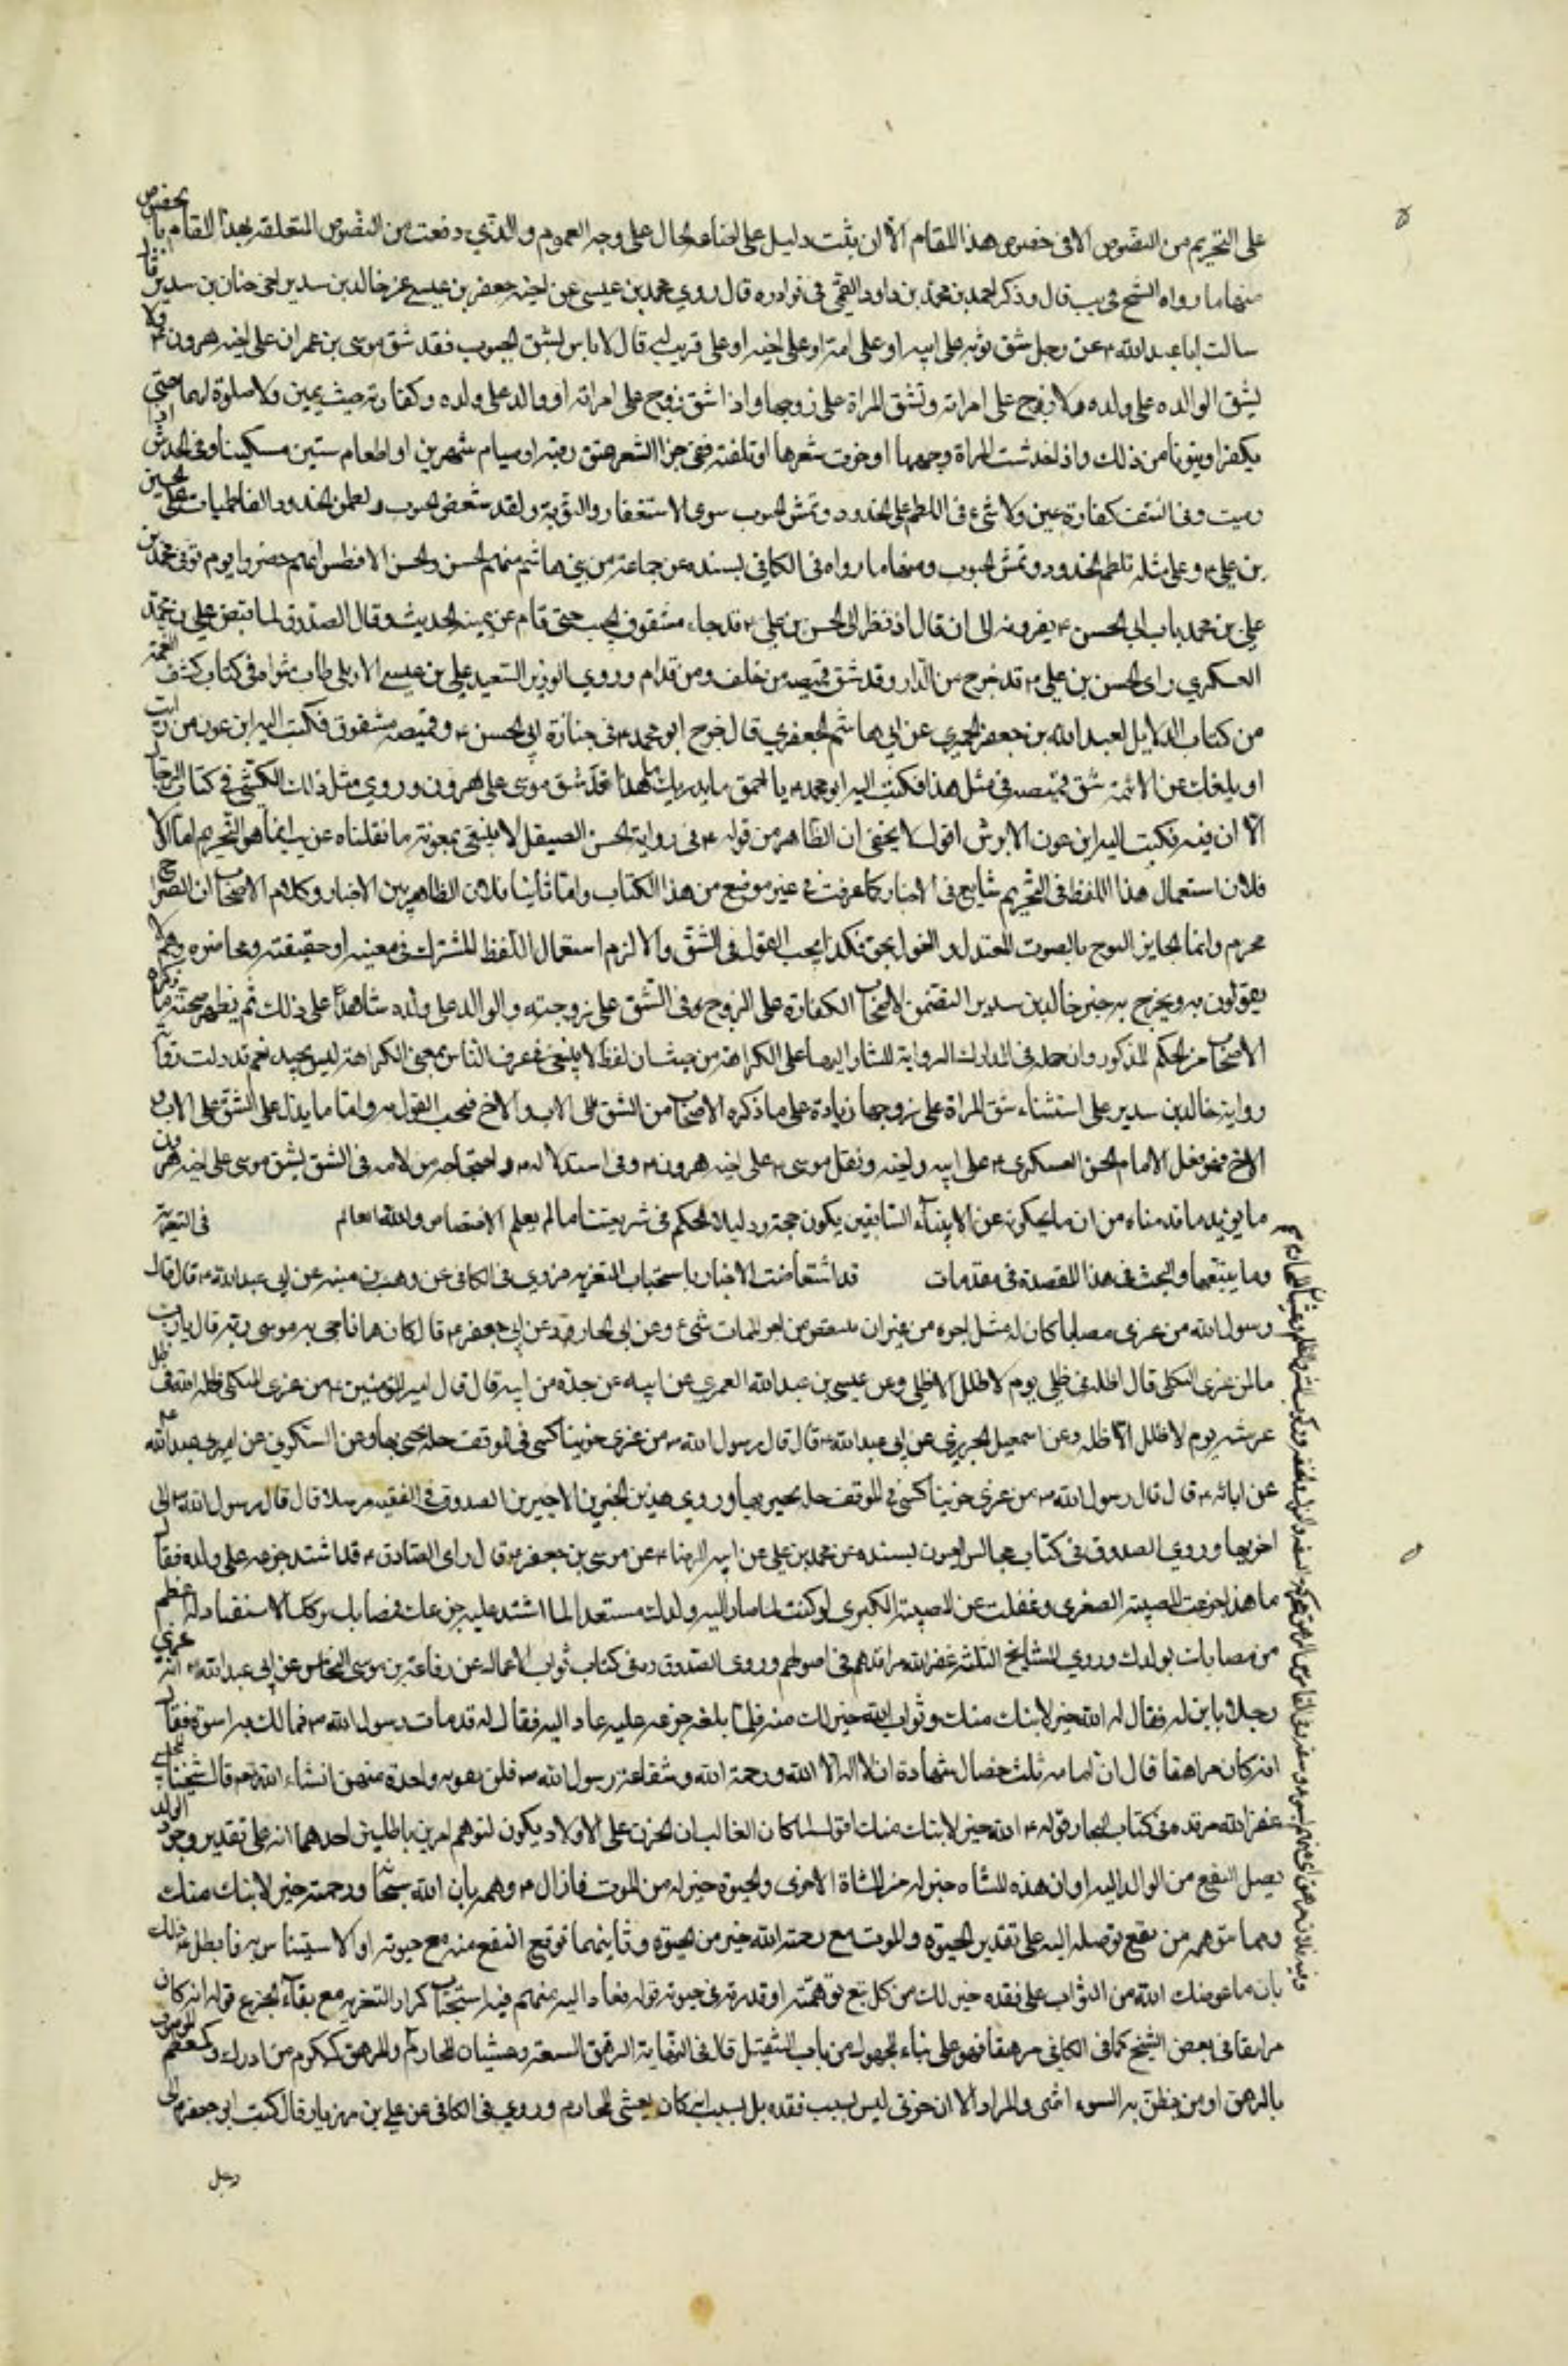 على التحريم من النصوص الا في خصوص هذا المقام الا ان يثبت دليل على اضاعة المال على وجه العموم والذي وقفت من النصوص المتعلقة بهذا المقام بخصوص
منها ما رواه الشيخ في يب قال وذكر احمد بن محمد بن داود القمي في نوادره قال روي محمد بن عيسى عن اخيه جعفر بن عيسى عن خالد بن سدير اخي حنان بن سدير قال
سالت ابا عبد الله ع عن رجل شق ثوبه على ابيه او على امه او على اخيه او على قريب له قال لا باس بشق الجيوب فقد شق موسى بن عمران على اخيه هرون ع ولا
يشق الوالد على ولده ولا زوج على امراته وتشق المراة على زوجها واذا شق زوج على امراته او والد على ولده وكفارته حنث يمين ولا صلوة لهما حتى
يكفرا ويتوبا من ذلك واذا خدشت المراة وجهها او جزت شعرها او نتفته ففي جز الشعر عتق رقبة او صيام شهرين او اطعام ستين مسكينا وفي الخدش اذا
دميت وفي النتف كفارة يمين ولا شيء في اللطم على الخدود وتمش الجيوب سوى الاستغفار والتوبة ولقد شققن الجيوب ولطمن الخدود الفاطميات على الحسين
بن علي ع وعلى مثله تلطم الخدود وتمش الجيوب ومنها ما رواه في الكافي بسنده عن جماعة من بني هاشم منهم الحسن والحسن الافطس انهم حضروا يوم توفي محمد بن
علي بن محمد باب ابي الحسن ع يعزونه الى ان قال اذ نظر الى الحسن بن علي ع قد جاء مشقوق الجيب حتى قام عن يمينه الحديث وقال الصدوق لما قبض علي بن محمد
العسكري راى الحسن بن علي ع قد خرج من الدار وقد شق قميصه من خلف ومن قدام وروي الوزير السعيد علي بن عيسى الاربلي طاب ثراه في كتاب كشف الغمة
من كتاب الدلايل لعبد الله بن جعفر الحميري عن ابي هاشم الجعفري قال خرج ابو محمد ع في جنازة ابي الحسن ع وقميصه مشقوق فكتب اليه ابن عون من رايت
او بلغك عن الائمة شق قميصه في مثل هذا فكتب اليه ابو محمد ع يا احمق ما يدريك ما هذا قد شق موسى على هرون وروي مثل ذلك الكشي في كتاب الرجال
الا ان فيه فكتب اليه ابن عون الابرش اقول لا يخفى ان الظاهر من قوله ع في رواية الحسن الصيقل لا ينبغي بمعونة ما نقلناه عن يب انما هو التحريم اما اولا
فلان استعمال هذا اللفظ في التحريم شايع في الاخبار كما عرفت في غير موضع من هذا الكتاب واما ثانيا فلان الظاهر بين الاخبار وكلام الاصحاب ان الصراخ
محرم وانما الجايز النوح بالصوت المعتدل والقول بحق فكذا يجب القول في الشق والا لزم استعمال اللفظ المشترك في معنييه او حقيقته ومجازه وهم لا
يقولون به ويخرج به خبر خالد بن سدير المتضمن لايجاب الكفارة على الزوج في الشق على زوجته والوالد على ولده شاهدا على ذلك ثم يظهر صحة ما ذكره
الاصحاب من الحكم المذكور وان حمله في المدارك الرواية المشار اليها على الكراهة من حيث ان لفظ لا ينبغي في عرف الناس بمعنى الكراهة ليس بجيد نعم قد دلت
رواية خالد بن سدير على استثناء شق المراة على زوجها زيادة على ما ذكره الاصحاب من الشق على الاب والاخ فيجب القول به واما ما يدل على الشق على الاب و
الاخ فهو فعل الامام الحسن العسكري ع على ابيه واخيه ونقل موسى ع على اخيه هرون ع وفي استدلاله ع واحتجاجه من لامه في الشق بشق موسى على اخيه هرون
ما يؤيد ما قدمناه من ان ما يحكونه عن الانبياء السابقين يكون حجة ودليلا للحكم في شريعتنا ما لم يعلم الاختصاص والله العالم في التعزية
وما يتبعها والبحث في هذا المقصد في مقدمات قد استفاضت الاخبار باستحباب التعزية فروي في الكافي عن وهب بن منبه عن ابي عبد الله ع قال قال
رسول الله من عزى مصابا كان له مثل اجره من غير ان ينتقص من اجر المصاب شيء وعن ابي الجارود عن ابي جعفر ع قال كان فيما ناجى به موسى ربه قال يا رب
ما لمن عزى الثكلى قال اظله في ظلي يوم لا ظل الا ظلي وعن عيسى بن عبد الله العمري عن ابيه عن جده عن ابيه قال قال امير المؤمنين ع من عزى الثكلى اظله الله في ظل
عرشه يوم لا ظل الا ظله وعن اسمعيل الجزري عن ابي عبد الله ع قال قال رسول الله ص من عزى حزينا كسي في الموقف حلة يحبى بها وعن السكوني عن ابي عبد الله ع
عن ابائه ع قال قال رسول الله ص من عزى حزينا كسي في الموقف حلة يحبر بها وروي هذين الخبرين الاخيرين الصدوق في الفقيه مرسلا قال قال رسول الله ص الى
اخر بها وروي الصدوق في كتاب مجالس العيون بسنده عن محمد بن علي عن ابيه الرضا ع عن موسى بن جعفر ع قال راى الصادق ع قد اشتد جزعه على ولده فقال
ما هذا جزعت للمصيبة الصغرى وغفلت عن المصيبة الكبرى لو كنت لما صار اليه ولدك مستعدا لما اشتد عليه جزعك فمصابك بتركك الاستعداد له اعظم
من مصابك بولدك وروي المشايخ الثلثة غفر الله مراقدهم في اصولهم وروى الصدوق ره في كتاب ثواب الاعمال عن رفاعة بن موسى النخاس عن ابي عبد الله ع انه عزى
رجلا بابن له فقال له الله خير لابنك منك وثواب الله خير لك منه فلما بلغه جزعه عليه عاد اليه فقال له قد مات رسول الله ص فما لك به اسوة فقال
انه كان مراهقا قال ان امامه ثلث خصال شهادة ان لا اله الا الله ورحمة الله وشفاعة رسول الله ص فلن يفوته واحدة منهن انشاء الله تعم قال شيخنا المجلسي
عفر الله مرقده في كتاب البحار قوله ع الله خير لابنك منك اقول لما كان الغالب ان الحزن على الاولاد يكون لتوهم امرين باطلين احدهما انه على تقدير وجود الولد
يصل النفع من الوالد اليه او ان هذه النشاة خير له من النشاة الاخرى والحيوة خير له من الموت فازال ع وهمه بان الله سبحانه ورحمته خير لابنك منك
ومما تتوهمه من نفع توصله اليه على تقدير الحيوة والموت مع رحمة الله خير من الحيوة وثانيهما توقع النفع منه مع حيوته او الاستيناس به فابطل ع ذلك
بان ما عوضك الله من الثواب على فقده خير لك من كل نفع توهمته او قدرته في حيوته قوله فعاد اليه يفهم فيه استحباب تكرار التعزية مع بقاء الجزع قوله انه كان
مراهقا في بعض النسخ كما في الكافي مرهقا فهو على بناء المجهول من باب التفعيل قال في النهاية الرهق السفه وغشيان المحارم والمرهق ككرم من ادرك وكمعظم الموصوف
بالرهق او من يظن به السوء انتهى والمراد الا ان حزني ليس بسبب فقده بل بسبب انه كان يغشى المحارم وروي في الكافي عن علي بن مهزيار قال كتب ابو جعفر الى
رجل